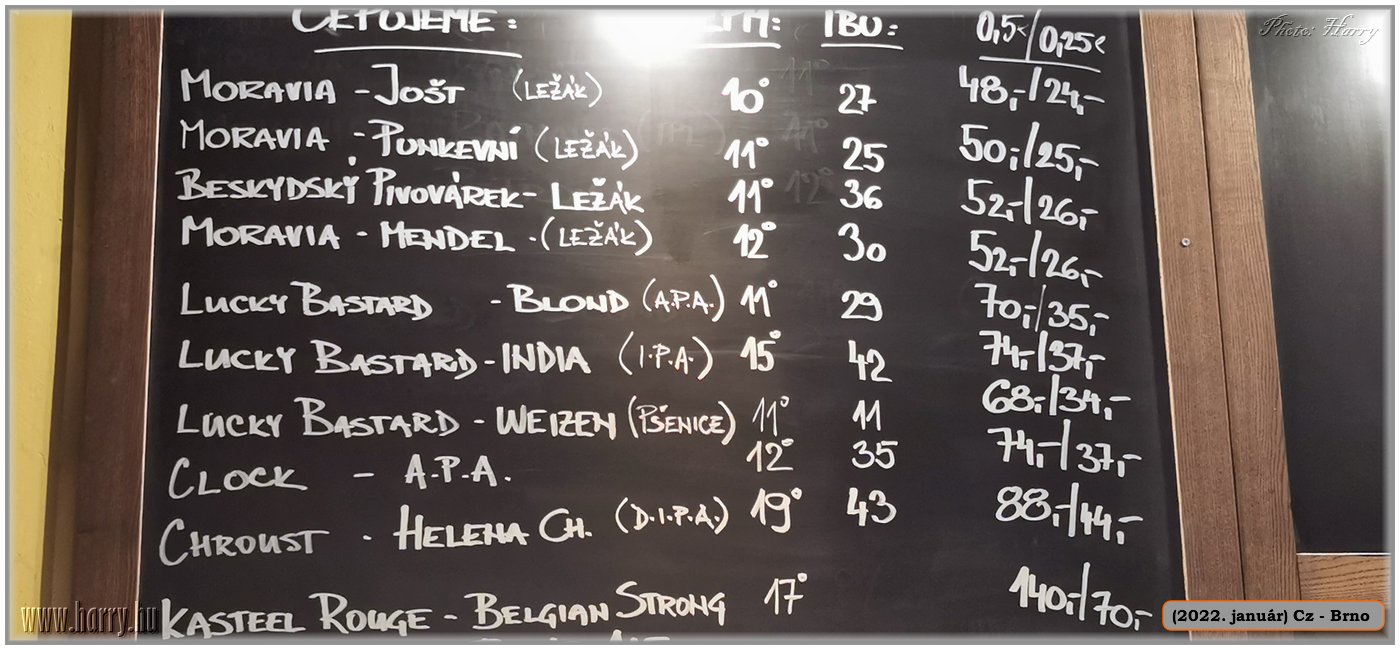 ČEPUJEME: EPM: IBU: 0,5ℓ/0,25ℓ
Photo: Harry
MORAVIA - JOŠT (LEŽÁK) 10° 27 48,-/24,-
MORAVIA - PUNKEVNÍ (LEŽÁK) 11° 25 50,-/25,-
BESKYDSKÝ PIVOVÁREK - LEŽÁK 11° 36 52,-/26,-
MORAVIA - MENDEL - (LEŽÁK) 12° 30 52,-/26,-
LUCKY BASTARD - BLOND (A.P.A.) 11° 29 70,-/35,-
LUCKY BASTARD - INDIA (I.P.A.) 15° 42 74,-/37,-
LUCKY BASTARD - WEIZEN (PŠENICE) 11° 11 68,-/34,-
CLOCK - A.P.A. 12° 35 74,-/37,-
CHROUST - HELENA CH. (D.I.P.A.) 19° 43 88,-/44,-
KASTEEL ROUGE - BELGIAN STRONG 17° 140,-/70,-
www.harry.hu
(2022. január) Cz - Brno